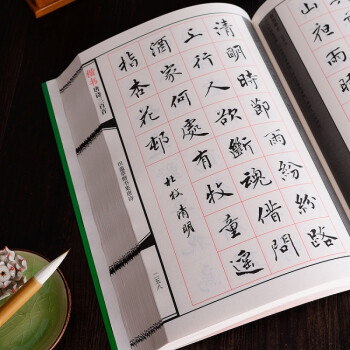 山夜雨時
清明時節雨紛紛路
上行人欲斷魂借問
酒家何處有牧童遙
指杏花邨
杜牧清明
楷书唐诗三百首
二五八